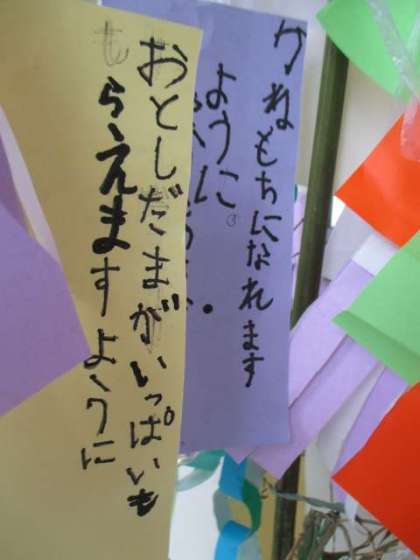 かねもちになれます
ように。
おとしだまがいっぱいも
らえますように